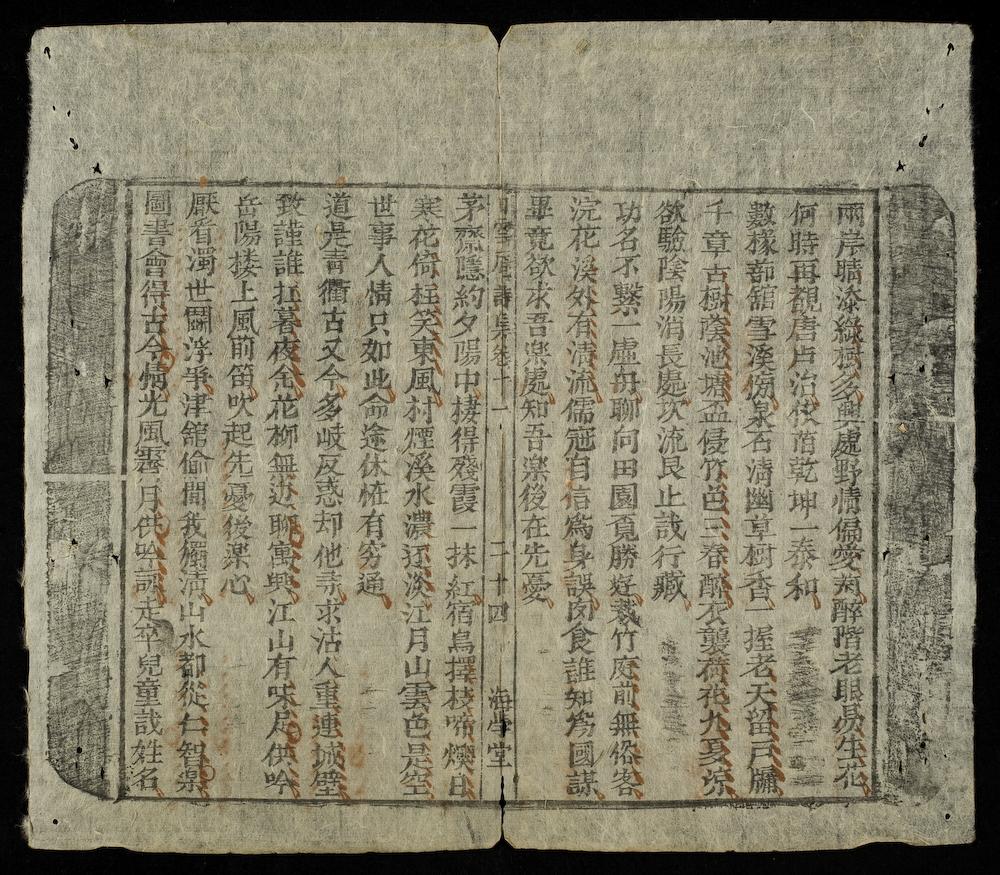 兩岸晴㳽綠樹多興處野情偏愛菊醉階老眼易生花
何時再覩唐虞治依舊乾坤一泰和
數椽蔀舘雪溪傍泉石清幽草樹香一握老天留戶牖
千章古樹蔭池塘盃侵竹色三春醉衣襲荷花九夏凉
欲驗陰陽消長處坎流艮止哉行藏
功名不繫一虛舟聊向田園覓勝好裁竹庭前無俗客
浣花溪外有清流儒冠自信爲身誤肉食誰知爲國謀
畢竟欲求吾楽處知吾楽後在先憂
雪 詩集卷十一 二十四 海學堂
茅齋隱約夕陽中棲得殘霞一抹紅宿鳥擇枝啼燠日
寒花倚柱笑東風村煙溪水濃还淡江月山雲色是空
世事人情只如此命途休恠有穷通
道是青衢古又今多岐反惑却他尋求沽人重連城璧
致謹誰扛暮夜金花柳無边聊寓興江山有味足供吟
岳陽楼上風前笛吹起先憂後楽心
厭看濁世閙浮乎津舘偷閒我獨清山水都從仁智樂
圖書會得古今情光風霽月供吟詠走卒兒童哉姓名